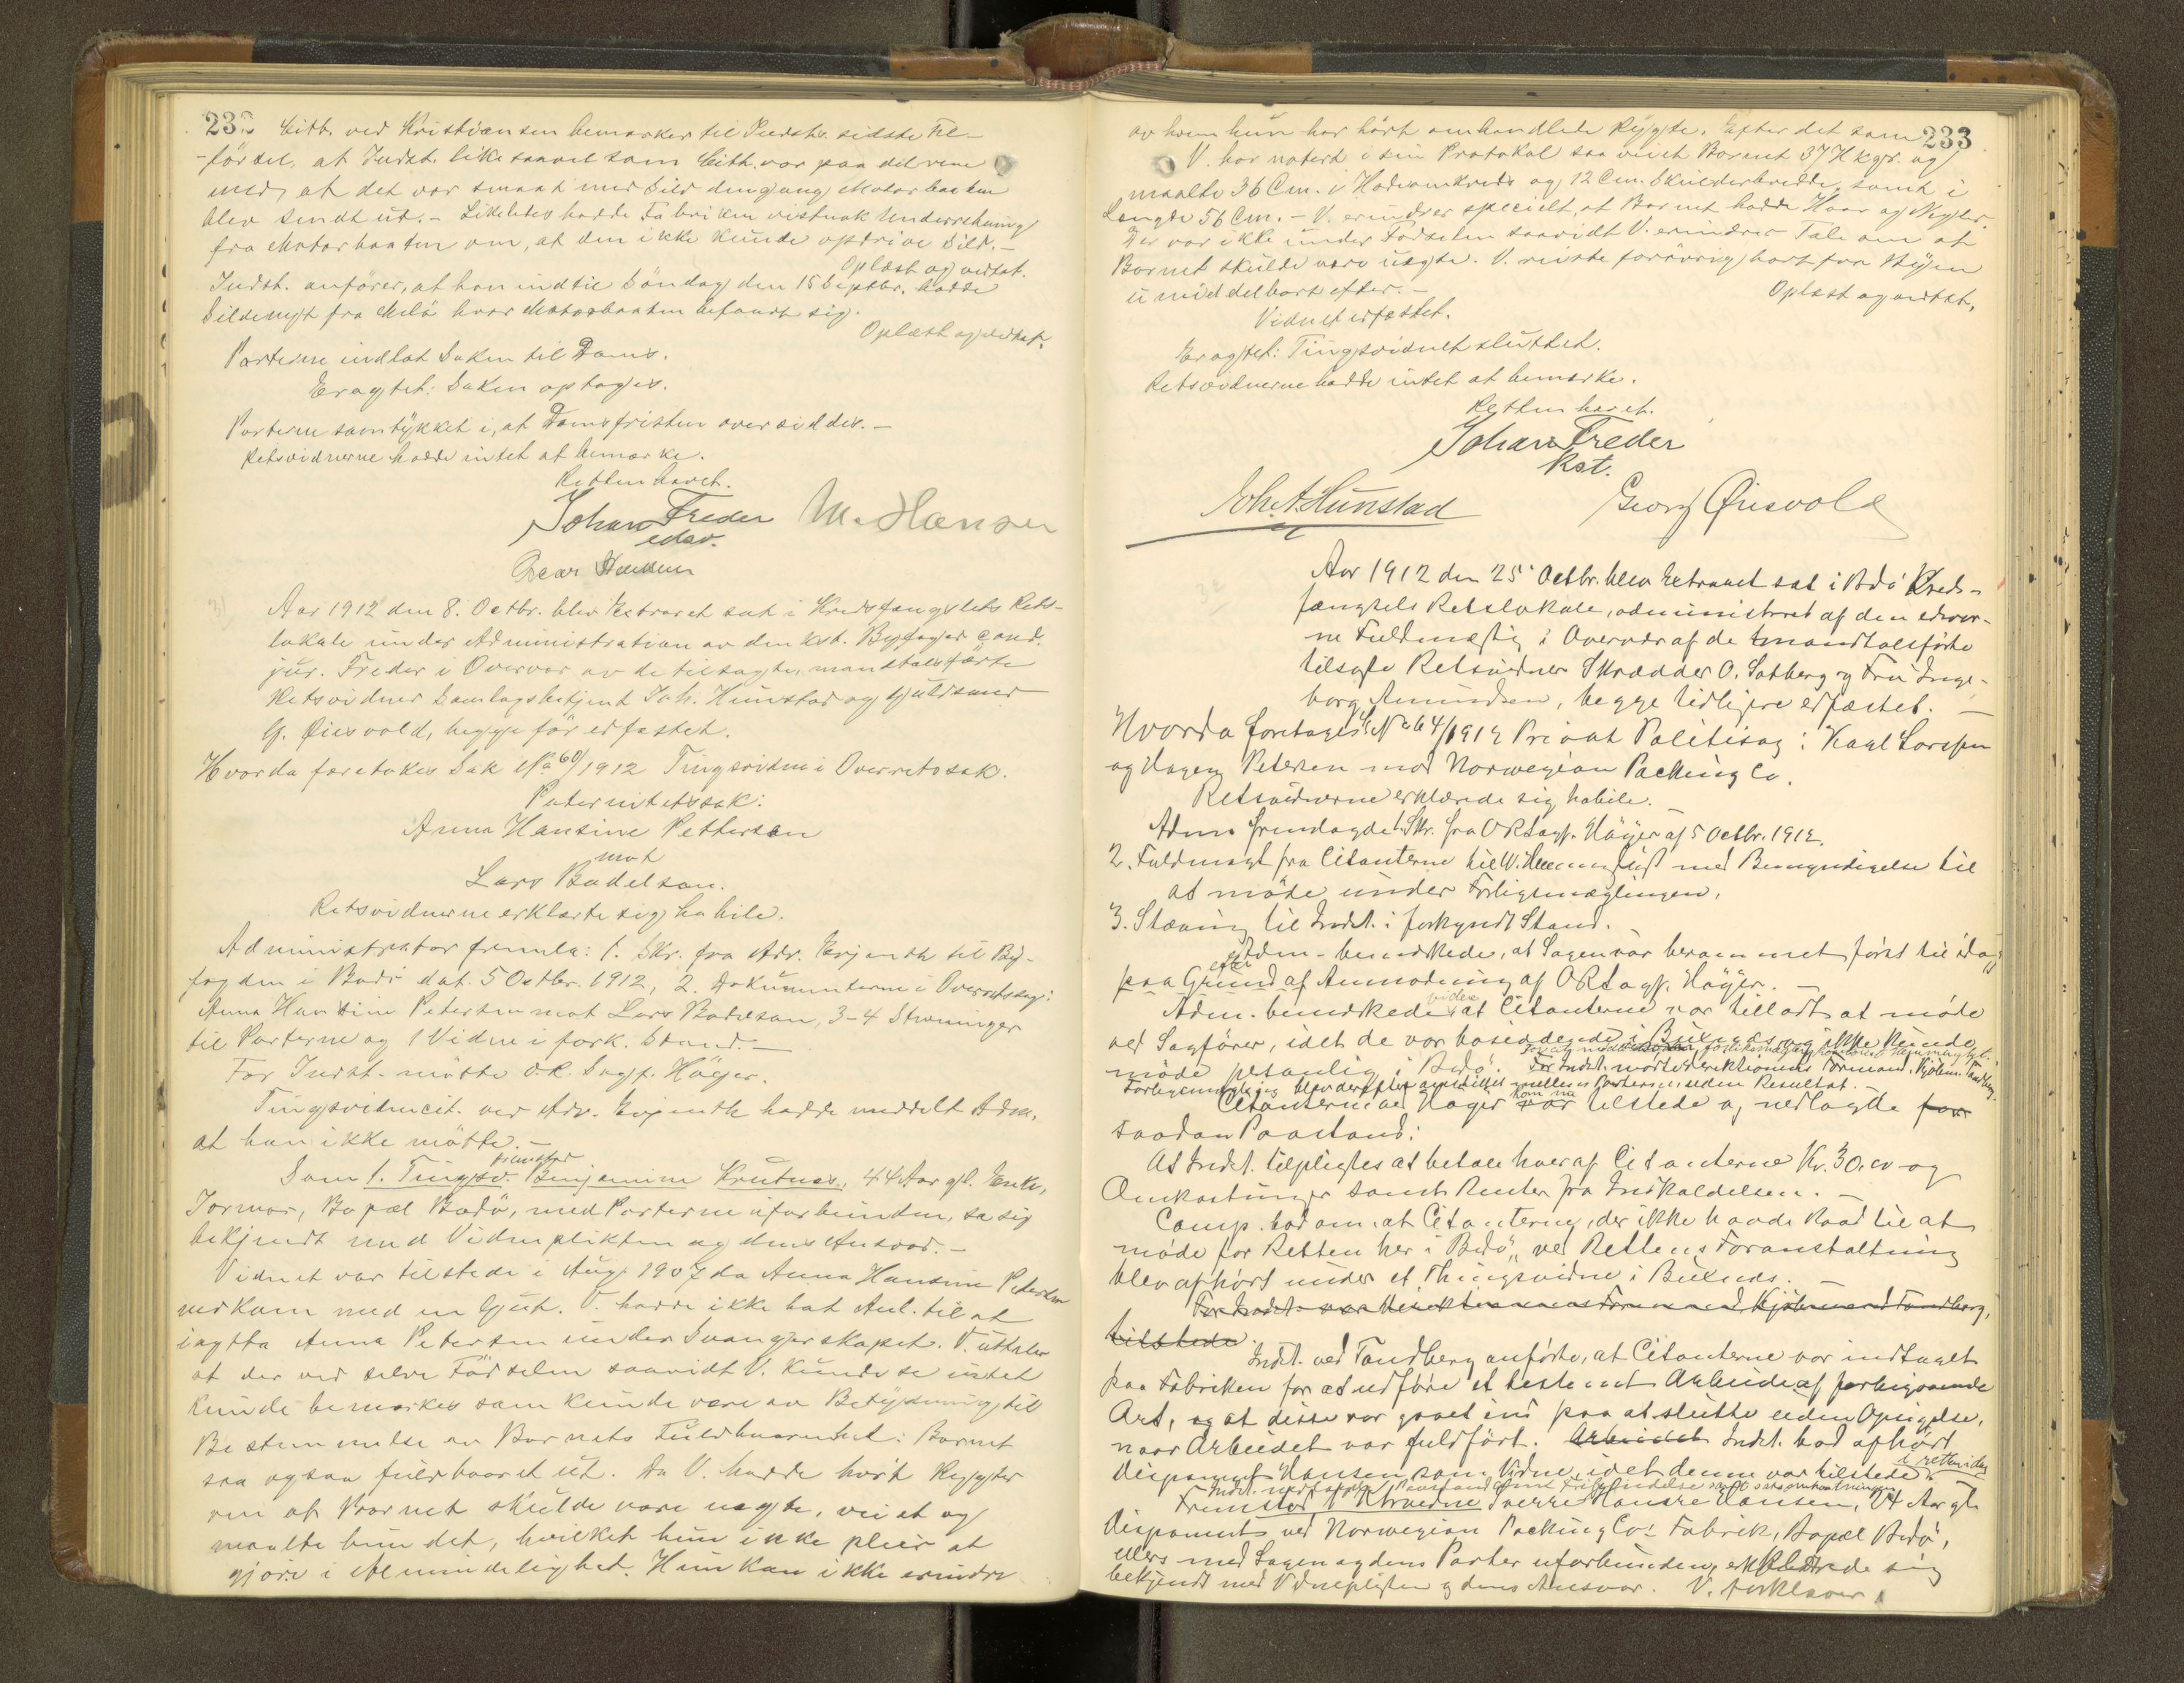 232 Citt. ved Kristiansen bemærker til Indst. sidste Til-
-försel, at Indst. like saavel som Citt. var paa det rene
med, at det var smaat med Sild dengang Motorbaaten
blev sendt ut. - Likeledes hadde Fabriken vistnok Underretning
fra Motorbaaten om, at den ikke kunde opdrive Sild. -
Oplæst og vedtat.
Indst. anförer, at han indtil Söndag den 15 Septbr. hadde
Sildenyt fra Melö hvor Motorbaaten befandt sig.
Oplæst og vedtat.
Parterne indlot Saken til Doms.
Eragtet: Saken optages.
Parterne samtykket i, at Domsfristen oversiddes. -
Retsvidnerne hadde intet at bemærke.
Retten hævet.
Johan Freder M. Hansen
edsv.
Oscar Hansen
Aar 1912 den 8. Octbr. blev Extraret sat i Kredsfængslets Rets-
lokale under Administration av den kst. Byfoged cand.
jur. Freder i Overvær av de tilsagte, mandtalsförte
Retsvidner Samlagsbetjent Joh. Hunstad og Guldsmed
G. Øiesvold, begge för edfæstet.
Hvorda foretokes Sak No 60/1912 Tingsvidne i Overretssak.
Paternitetssak:
Anna Hansine Pettersen
mot
Lars Bodelsen.
Retsvidnerne erklærte sig habile.
Administrator fremla: 1. Skr. fra Adv. Evjenth til By-
fogden i Bodö dat. 5 Octbr. 1912, 2. Dokumenterne i Overretssag:
Anna Hansine Petersen mot Lars Bodelsen, 3-4 Stevninger
til Parterne og 1 Vidne i fork. Stand. -
For Indst. mötte O.R. Sagf. Höyer.
Tingsvidnecit. ved Adv. Evjenth hadde meddelt Adm.
at han ikke mötte. -
fremstod
Som 1. Tingsv. Benjamine Krutnes, 44 Aar gl. Enke,
Jormor, Bopæl Bodö, med Parterne uforbunden, sa sig
bekjendt med Vidneplikten og dens Ansvar. -
Vidnet var tilstede i Aug. 1907 da Anna Hansine Petersen
nedkom med en Gut. V. hadde ikke hat Anl. til at
iagtta Anna Petersen under Svangerskapet. V. uttaler
at der ved selve Födselen saavidt V. kunde se intet
kunde bemærkes som kunde være av Betydning til
Bestemmelse av Barnets Fuldbaarenhet: Barnet
saa ogsaa fuldbaaret ut. Da V. hadde hört Rygter
om at Barnet skulde være uegte, veiet og
maalte hun det, hvilket hun ikke pleier at
gjöre i Almindelighet. Hun kan ikke erindre
233
av hvem hun har hört omhandlede Rygte. Efter det som
V. har notert i sin Protokol saa veiet Barnet 3 7/8 kgr. og
maalte 36 Cm. i Hodeomkreds og 12 Cm. Skulderbredde, samt i
Længde 56 Cm. - V. erindrer specielt, at Barnet hadde Haar og Negler.
Der var ikke under Födselen saavidt V. erindrer Tale om at
Barnet skulde være uegte. V. reiste forövrig bort fra Byen
umiddelbart efter. -
Oplæst og vedtat.
Vidnet edfæstet.
Eragtet: Tingsvidnet sluttet.
Retsvidnerne hadde intet at bemærke.
Retten hævet.
Johan Freder
Kst.
Joh. A. Hunstad Georg Øiesvold
Aar 1912 den 25' Octbr. blev Extraret sat i Bodö Kreds-
fængsels Retslokale, administreret af den edsvor-
ne Fuldmægtig i Overvær af de mandtalsförte
tilsagte Retsvidner Skrædder O. Solberg og Fru Inge-
borg Amundsen, begge tidligere edfæstet. -
Hvorda foretages S. No 64/1912 Privat Politisag: Karl Larssen
og Hagen Petersen mod Norwegian Packing Co.
Retsvidnerne erklærede sig habile. -
Adm. fremlagde 1. Skr. fra ORSagf. Höyer af 5 Octbr. 1912.
2. Fuldmagt fra Citanterne til W. Hemminghytt med Bemyndigelse til
at möde under Forligsmæglingen.
3. Stævning til Indst. i forkyndt Stand.
Adm. bemærkede, at Sagen var berammet först til idag
efter
paa Grund af Anmodning af ORSagf. Höyer. -
videre
Adm. bemærkede at Citanterne var tilladt at möde
ved Sagförer, idet de var bosiddende i Buksnes og ikke kunde
möde personlig i Bodö. For Indst. mötte Direktionens Formand, Kjöbm. Tandberg.
Forligsmægling blev derefter anstillet mellem Parterne uden Resultat. -
kom nu
Citanterne ved Höyer var tilstede og nedlagde for
saadan Paastand:
At Indst. tilpligtes at betale hver af Citanterne Kr. 30,00 og
Omkostninger samt Renter fra Indkaldelsen. -
Comp. bad om, at Citanterne, der ikke havde Raad til at
möde for Retten her i Bodö, ved Rettens Foranstaltning
blev afhört under et Thingsvidne i Buksnes. -
For Indst. var Direktionens Formand Kjöbmand Tandberg,
tilstede
Indst. ved Tandberg anförte, at Citanterne var indtaget
paa Fabriken for at udföre et bestemt Arbeide af forbigaaende
Art, og at disse var gaaet ind paa at slutte uden Opsigelse,
naar Arbeidet var fuldfört. Arbeidet Indst. bad afhört
Disponent Hansen som Vidne, idet denne var tilstede
i retten idag
Indst. nedlagde Paastand om Frifindelse samt saksomkostninger.
Fremstod 1' Vidne Sverre Hauske Hansen, 24 Aar gl.
Disponent ved Norwegian Packing Co's Fabrik, Bopæl Bodö,
ellers med Sagen og dens Parter uforbunden, erklærede sig
bekjendt med Vidnepligten og dens Ansvar. V. forklarer